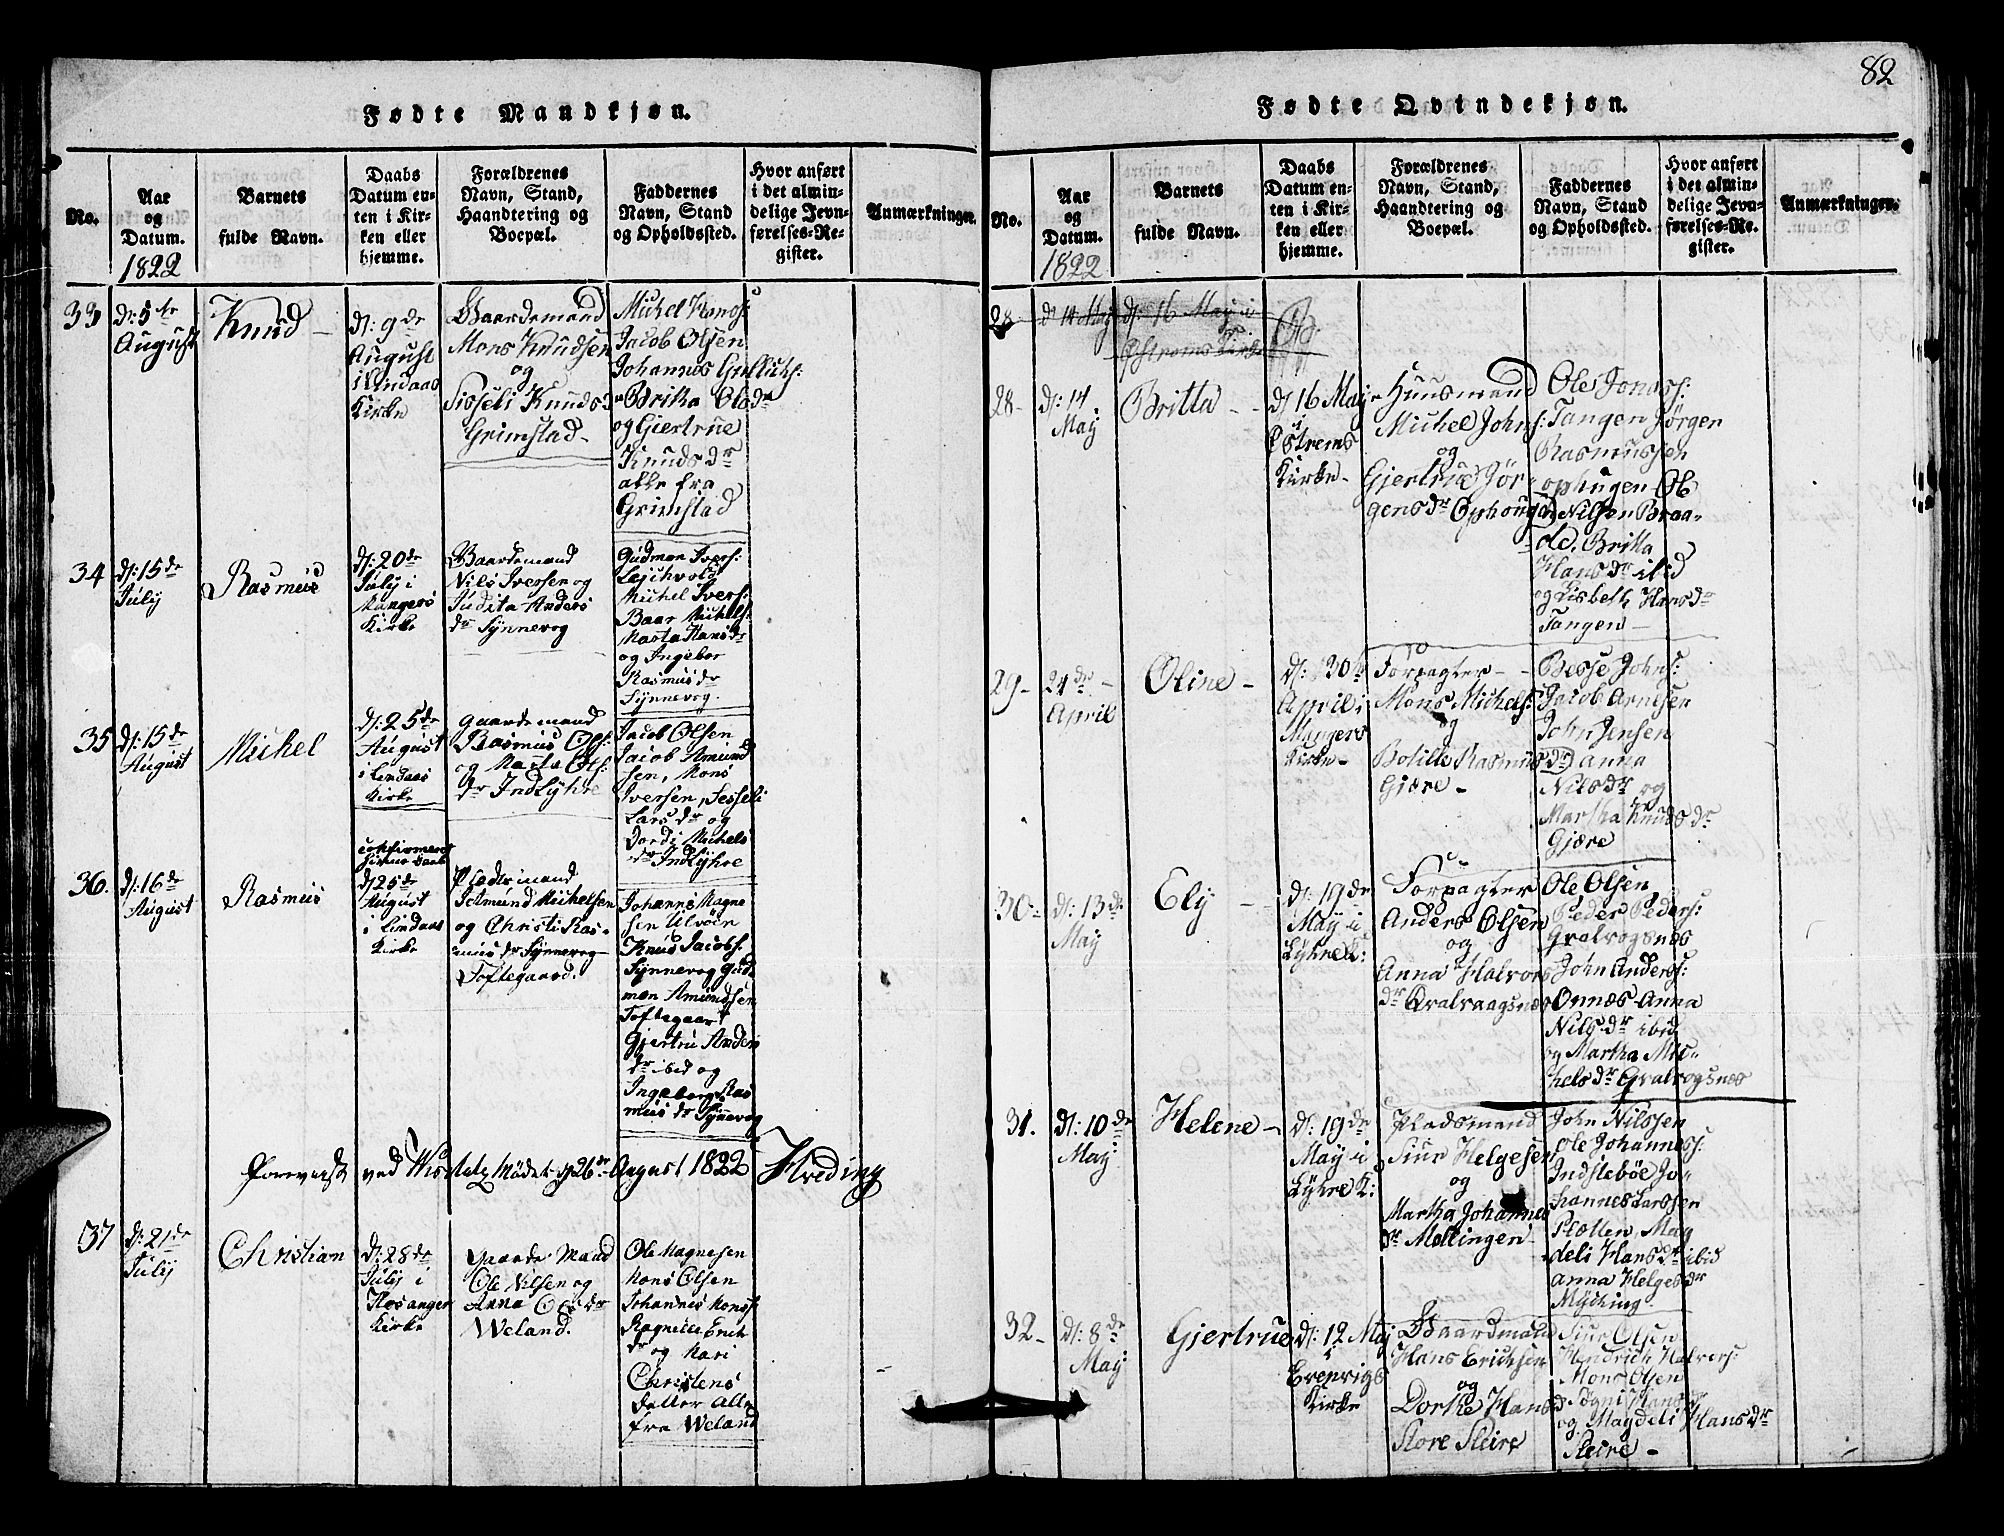 82
Fødte Mandkjøn.
No.
Aar
og
Datum.
1822
Barnets
fulde Navn.
Daabs
Datum en-
ten i Kir-
ken eller
hjemme.
Forældrenes
Navn, Stand,
Haandtering og
Boepæl.
Faddernes
Navn, Stand
og Opholdssted.
Hvor anført
i det almin-
delige Jevn-
førelses-Re-
gister.
Anmærkninger.
33
d: 5te
August
Knud
d: 9de
August
i Lindaas
Kirke
Gaardemand
Mons Knudsen
og
Sisseli Knuds d
Grimstad
Michel Hans:
Jacob Olsen
Johannes Gulliks:
Brita Ols dr
og Giertrue
Knuds dr
alle fra
Grimstad
34
d: 15de
July
Rasmus
d: 20de
July i
Mangers
Kirke
Gaardemand
Nils Iversen og
Judita Anders
dr Synnevog
Gudmon Ivers:
Michel Ivers:
Baar Michels:
Marta Hans dr
og Ingebor
Rasmus dr
Synnevog.
35
d: 15de
August
Michel
d: 25de
August
i Lindaas
Kirke
gaardemand
Rasmus Ols:
og Marta Ols:
dr Indlyhre
Jacob Olsen
Jacob Amund
sen, Mons
Iversen, Sesseli
Lars dr og
Dordi Michels
dr Indlyhre
36.
d: 16de
August
Rasmus
d 25de
August
i Lindaas
Kirke
Amund Michelsen
og Christi Ras-
mus dr Synnevog
Toftegaard.
Johannes Magne
sen Ulvøen
Knud Jacobs:
Synnevog Gud
mon Amundsen
Toftegaart
Gjertru Anders
dr ibid og
Ingeborg Ras
mus dr Synnevog
ved Mødet d 26de August 1822
37
d: 21de
July
Christian
d: 28de
July i
Hosanger
Kirke
Gaarde Mand
Ole Nilsen og
Anna Ols dr
Weland.
Ole Magnesen
Mons Olsen
Johannes Mons:
Ragnille Erich
dr og Mari
Christens
datter Alle
fra Weland
Fødte Qvindekjøn.
No.
Aar
og
Datum.
1822
Barnets
fulde Navn.
Daabs
Datum en-
ten i Kir-
ken eller
hjemme.
Forældrenes
Navn, Stand,
Haandtering og
Boepæl.
Faddernes
Navn, Stand
og Opholdssted.
Hvor anført
i det almin-
delige Jevn-
førelses-Re-
gister.
Anmærkninger.
28
d 14 May
d: 16 May i
Kirke
28-
d: 14
May
Britta
d 16 May
i
Østrems
Kirke-
Huusmand
Michel Johns:
og
Gjertrue Jør
gens dr Ophougen
Ole Jonas:
Tangen Jørgen
Rasmussen
ophugen Ole
Nilsen Braa-
Britta
Hans dr ibid
og Lisbeth Hans dr
Tangen
29-
24de
April
Oline
d: 30te
April i
Mangers
Kirke-
Forpagter
Mons Michels:
og
Botille Rasmus dr
Gjære-
Besse Johns:
Jacob Arnesen
John Jensen
anna
Nils dr og
Martha Knuds dr
Gjære
30-
d: 13de
May
Ely
d: 19de
May i
Lyhre K:
Forpagter
Anders Olsen
og
Anna Halvors
dr Qvalvaagsnes
Ole Olsen
Peder Peders:
Qvalvogsnæs
John Anders:
Onnæs Anna
Nils dr ibid
og Martha Mic-
hels dr Qvalvogsnæs
31.
d: 10de
May
Helene
d: 19de
May i
Lyhre K:
Pladsmand
Siur Helgesen
og
Martha Johannes
dr Mellingen
John Nilssen
Ole Johannes:
Indslebøe Jo-
hannes Larssen
Slotten Mag
deli Hans dr ibid
anna Helges dr
Myching
32-
d: 8de
May
Gjertrue
d: 12 May
i
Evenvigs
Kirke
Gaardmand
Hans Erichsen
og
Dorthe Hans d
Store Steire
Siur Olsen
Hendrich Halvers:
Mons Olsen
Hans dr
og Magdeli Hans dr
Steire-